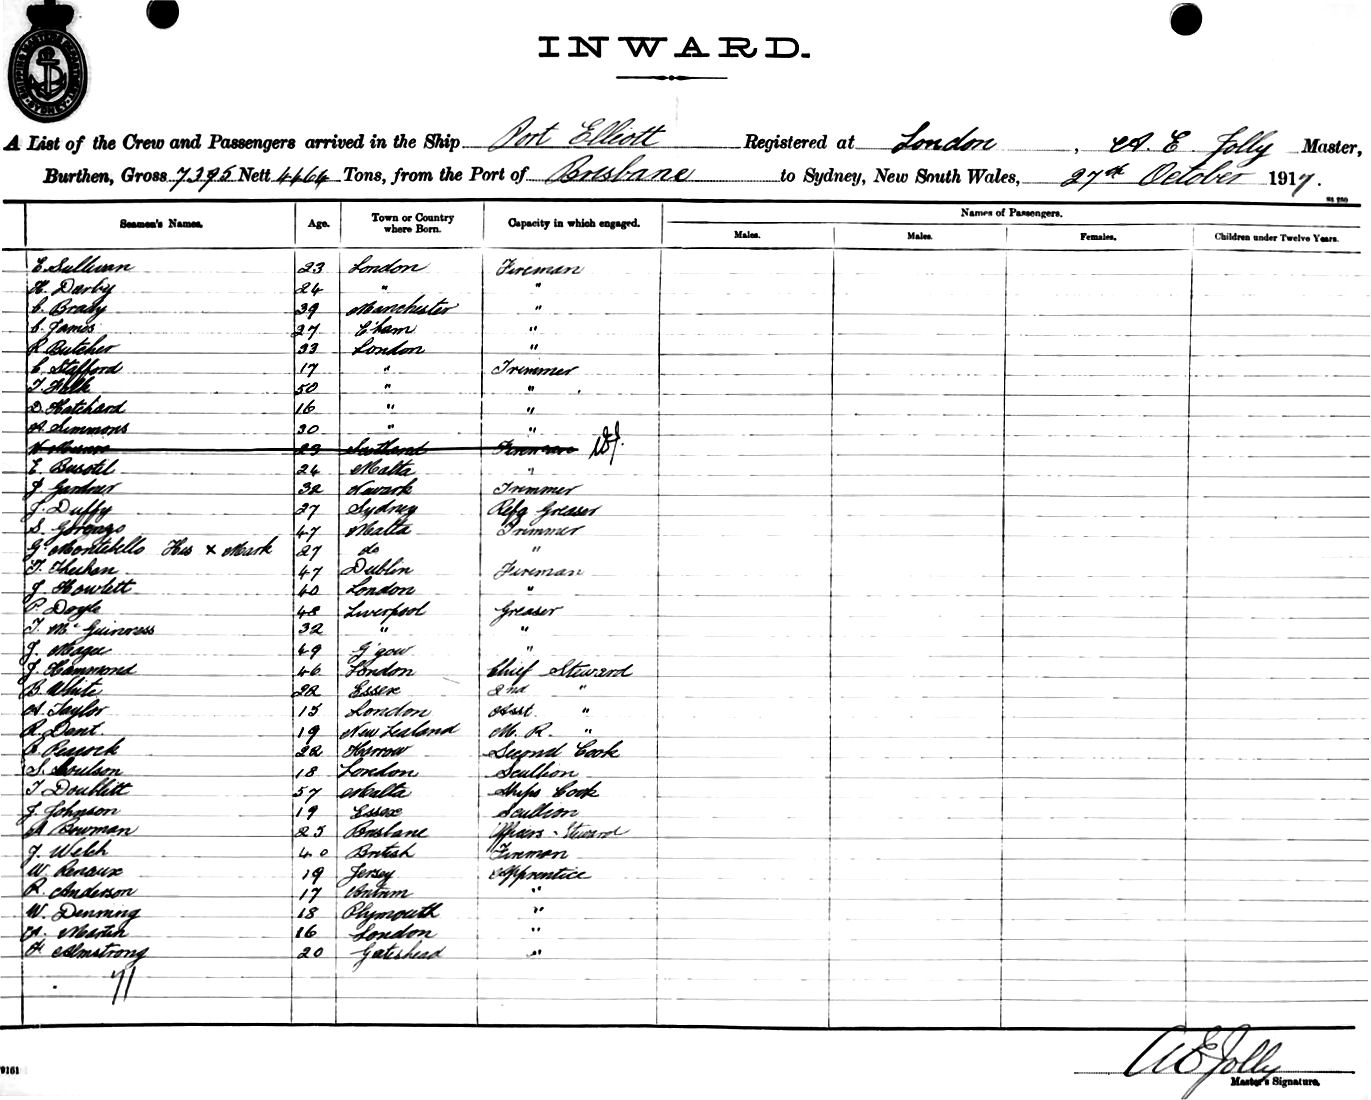 SHIPPING MASTERS DEPARTMENT SYDNEY
INWARD.
A List of the Crew and Passengers arrived in the Ship Port Elliott Registered at London, A. E. Jolly Master,
Burthen, Gross 7395 Nett 4464 Tons, from the Port of Brisbane to Sydney, New South Wales, 27th October 1917.
Seamen's Names. Age. Town or Country where Born. Capacity in which engaged. Names of Passengers.
Males. Males. Females. Children under Twelve Years.
E. Sullivan 23 London Fireman
H. Darby 24 " "
C. Brady 39 Manchester "
C. James 27 E'ham "
R. Butcher 33 London "
C. Stafford 17 " Trimmer
T. 50 " "
D. Hatchard 16 " "
A. Simmons 30 " "
23 Scotland Fireman
E. Busutil 24 Malta "
J. Gardner 32 Newark Trimmer
J. Duffy 27 Sydney Refg Greaser
S. 47 Malta Trimmer
G. Montebello His x Mark 27 do "
T. 47 Dublin Fireman
J. Howlett 40 London "
P. Doyle 48 Liverpool Greaser
T. McGuinness 32 " "
J. Magee 49 G'gow "
J. Hammond 46 London Chief Steward
B. White 22 Essex 2nd "
A. Taylor 15 London Asst. "
R. Dent. 19 New Zealand M. R. "
Peacock 22 Harrow Second Cook
S. Coulson 18 London Scullion
T. Doublitt 57 Malta Ships Cook
J. Johnson 19 Essex Scullion
A. Bowman 25 Brisbane Officers Steward
J. Welch 40 British Fireman
W. Renaux 19 Jersey Apprentice
R. Anderson 17 Antrim "
W. Denning 18 Plymouth "
A. Martin 16 London "
F. Armstrong 20 Gateshead "
71
A E Jolly
Master's Signature.
9161